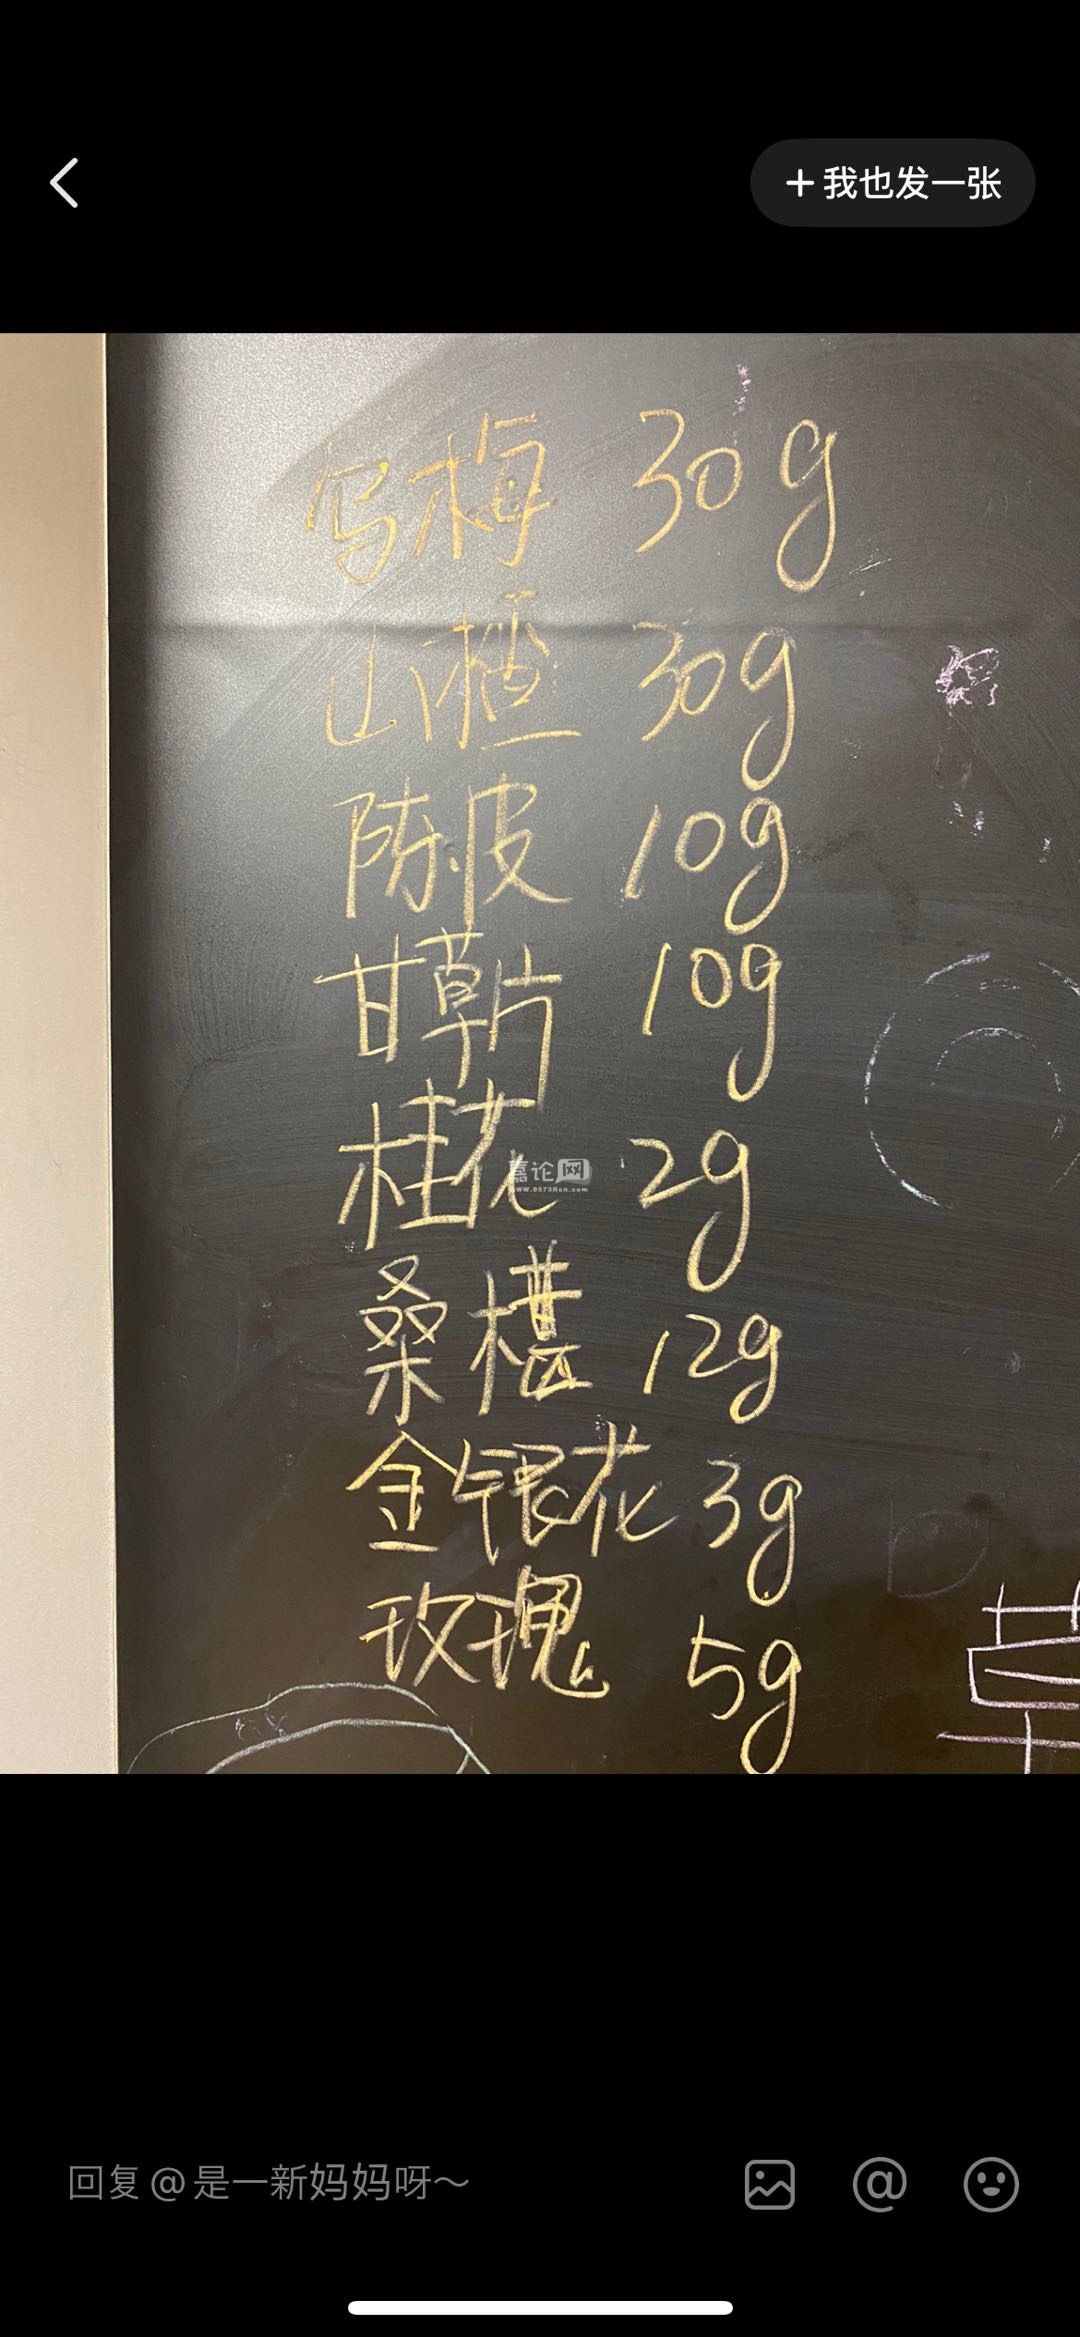 +我也发一张
乌梅 30g
山楂 30g
陈皮 10g
甘草片 10g
桂花 2g
嘉论网
www.0573Ren.com
桑椹 12g
金银花 3g
玫瑰 5g
草
回复 @是一新妈妈呀～